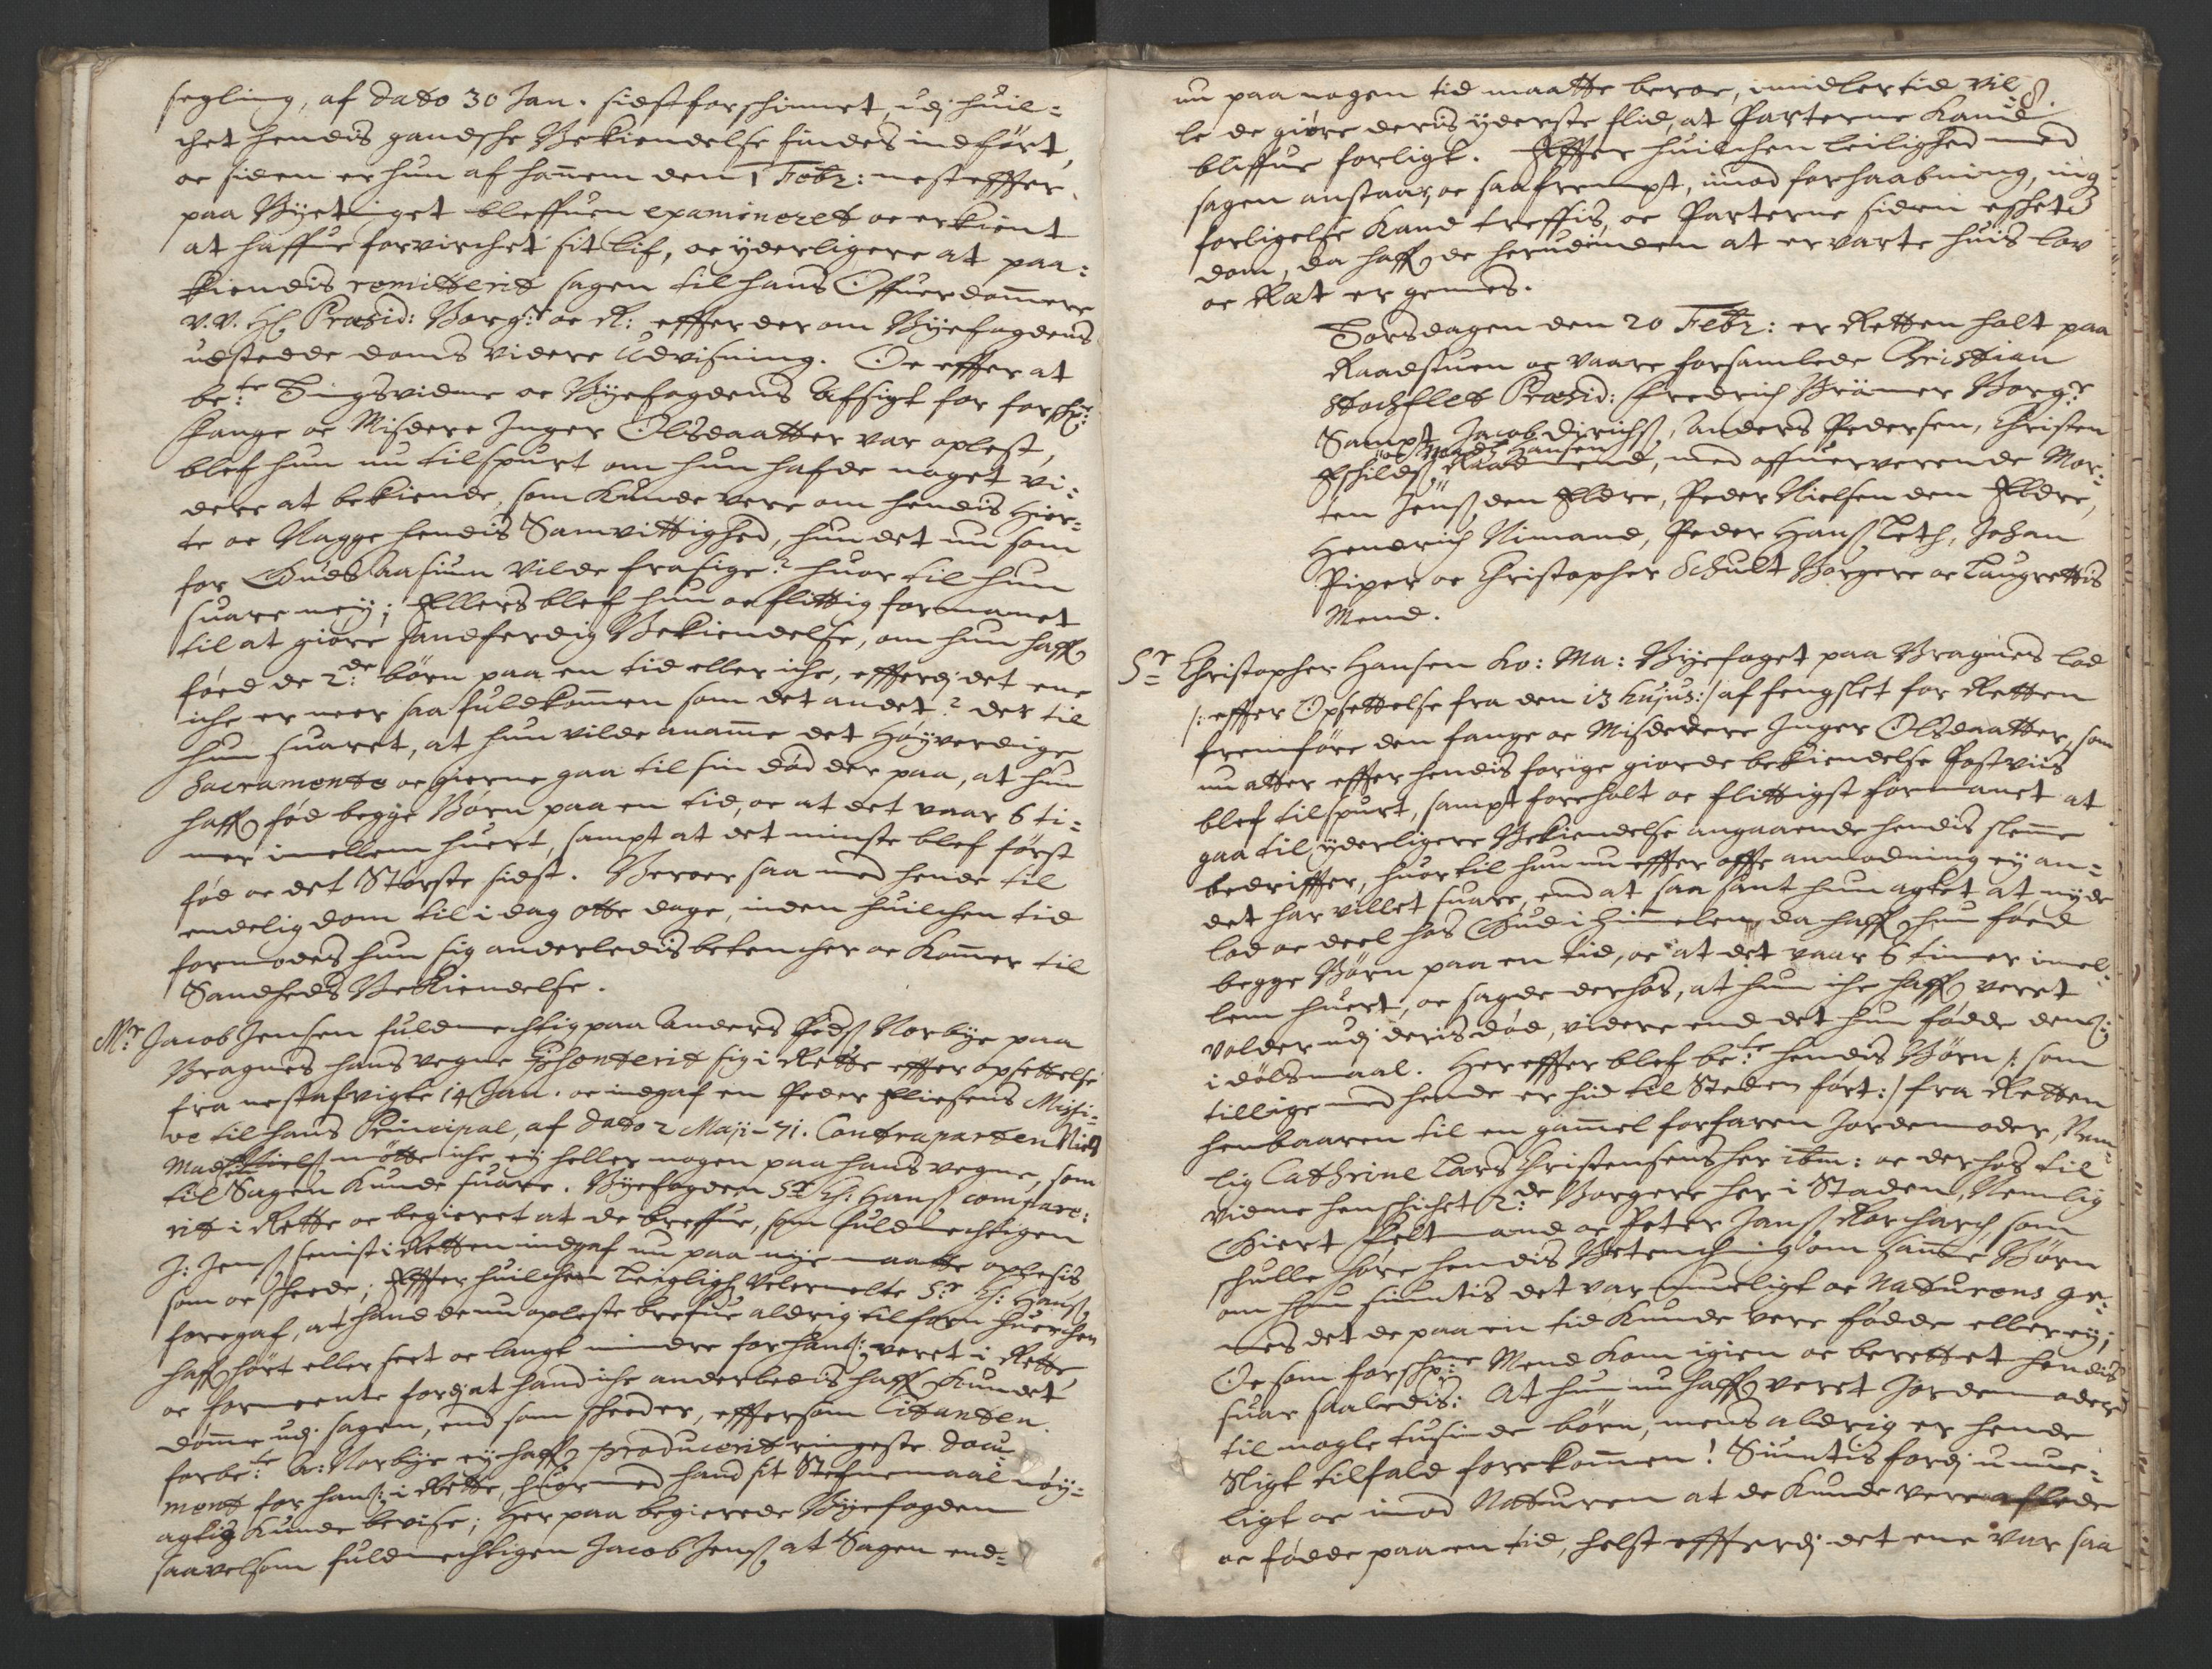 segling, af dato 30 Jan. sidstforschinnet, udj huil=
chet hendis gandsche Bekiendelse findes indført,
oc siden er hun af hannem den 1 Febr: nest effter
paa Byetinget bleffuen examineret oc erkient
at haffue forvirchet sit lif, oc yderligere at paa=
kiendis remitterit sagen til hans Offuerdommere
V.V. H: Præsid: Borg:r oc R: effter der om Byefogdens
udstedde doms videre Udvisning. Oc effter at
be:te Tingsvidne oc Byefogdens Afsigt for forsch:ne
Fange oc Misdere Inger Olsdaatter var oplest,
blef hun nu tilspurt om hun hafde noget vi=
dere at bekiende, som Kunde vere om hendis Hier=
te oc Nagge hendis Samvittighed, hun det nu som
for Guds aasiun vilde frasige? huor til hun
suare ney; Ellers blef hun oc flittig formanet
til at giøre sandferdig Bekiendelse, om hun haffr
føed de 2:de børn paa en tid eller iche, effterdj det ene
iche er neer saa fuldkommen som det andet? der til
hun suaret, at hun vilde anamme det Høyverdige
Sacramente oc gierne gaa til sin død der paa, at hun
haffr fød begge Børn paa en tid, oc at det vaar 6 ti=
mer imellem huert, sampt at det minste blef først
fød oc det Største sidst. Beroer saa med hende til
endelig dom til i dag otte dage, inden huilchen tid
formodes hun sig anderledis betencher oc Kommer til
Sandheds Bekiendelse.
M:r Jacob Jensen fuldmechtig paa Anders Peds: Norbye paa
Bragnes hans vegne præsenterit sig i Rette effter opsettelse
fra nestafvigte 14 Jan. oc indgaf en Peder Eliesens Missi=
ve til hans Principal, af dato 2 Maji-71. Contraparten Niels
Mads: møtte iche ey heller nogen paa hans vegne, som
til Sagen Kunde suare. Byefogden S:r Ch: Hans: compare=
rit i Rette oc begieret at de breffue, som fuldmechtigen
J: Jens: senist i Retten indgaf nu paa nye maatte oplesis
som oc scheede; Effter huilchen leiligh: velermelte S:r Ch: Hans:
foregaf, at hand de nu opleste brefue aldrig tilforn huerchen
haffr hørt eller seet oc langt mindre for hans: veret i Rette,
oc formeente fordj at hand iche anderledis haffr Kundet
dømme udj sagen, end som scheeder, effterson Citanten
forbe:te A: Norbye ey haffr producerit ringeste docu=
ment for hans: i Rette, huormed hand sit Stefnemaal nøy=
agtig Kunde bevise; Her paa begierede Byefogden
saavelsom fuldmechtigen Jacob Jens: at Sagen end=
nu paa nogen tid maatte beroe, imidlertid vil
8.
le de giøre deris yderste flid, at Parterne Kand
bliffue forligt. Effter huilchen leilighed med
sagen anstaar, oc saafrempt, imod forhaabning, ing
forligelse Kand treffis, oc Parterne siden eschet
dom, da haffr de herudinden at ervarte huis lov
oc Ræt er gemes.
Torsdagen den 20 Febr: er Retten holt paa
Raadstuen oc vaare forsamlede Christian
Stochflet Præsid: Fredrich Brämer Borg:r
Sampt Jacob Dyrichs:, Anders Pedersen, Christen
oc Mads Hansen
Eschilds: Raadmend, med offuerverende Mor=
ten Jens: den Eldre, Peder Nielsen den Eldre,
Hendrich Nimand, Peder Hans: Leth, Johan
Piper oc Christopher Schult Borgere oc Laugrettis
Mend.
S:r Christopher Hansen Ko: Ma: Byefoget paa Bragnes lod
/: effter Opsettelse fra den 13 hujus :/ af fengslet for Retten
fremføre den fange oc Misdedere Inger Olsdaatter, som
nu atter effter hendis forige giorde bekiendelse Postviis
blef tilspurt, sampt foreholt oc flittigst formanet at
gaa til yderligere Bekiendelse angaaende hendis slemme
bedriffter, huortil hun nu effter offte anmodning ey an=
det har villet suare, end at saa sant hun agtet at nyde
lod oc deel hos Gud i Himmelen, da haffr hun føed
begge Børn paa en tid, oc at det vaar 6 timer imel=
lem huert, oc sagde derhos, at hun iche haffr veret
volder udj deris død, videre end det hun fødde dem
i dølsmaal. Her effter blef be:te hendis Børn /: som
tillige med hende er hid til Steden ført :/ fra Retten
henbaaren til en gammel forfaren Jordemoder, Nem=
lig Cathrine Lars Christensens her ibm: oc derhos til
vidne henschichet 2:de Borgere her i Staden, Nemlig
Giert Feltmand oc Peter Jans: Korchardt, som
schulle høre hendis Betenchning om samme Børn
om hun siuntis det var mueligt oc Naturens ge=
mes det de paa en tid Kunde vere fødde eller ey;
Oc som forsch:ne Mend Kom igien oc berettet hendis
suar saaledis: At hun nu haffr veret Jordemoder
til nogle tusinde børn, mens aldrig er hende
Sligt tilfald forekommen! Siuntis fordj umue=
ligt oc imod Naturen at de Kunde vere aflede
oc fødde paa en tid, helst effterdj det ene var saa